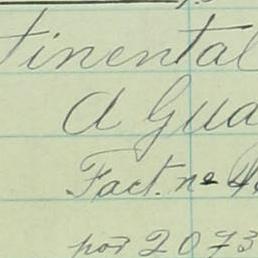 tinental
A Gua
Fact. nº
por 2073